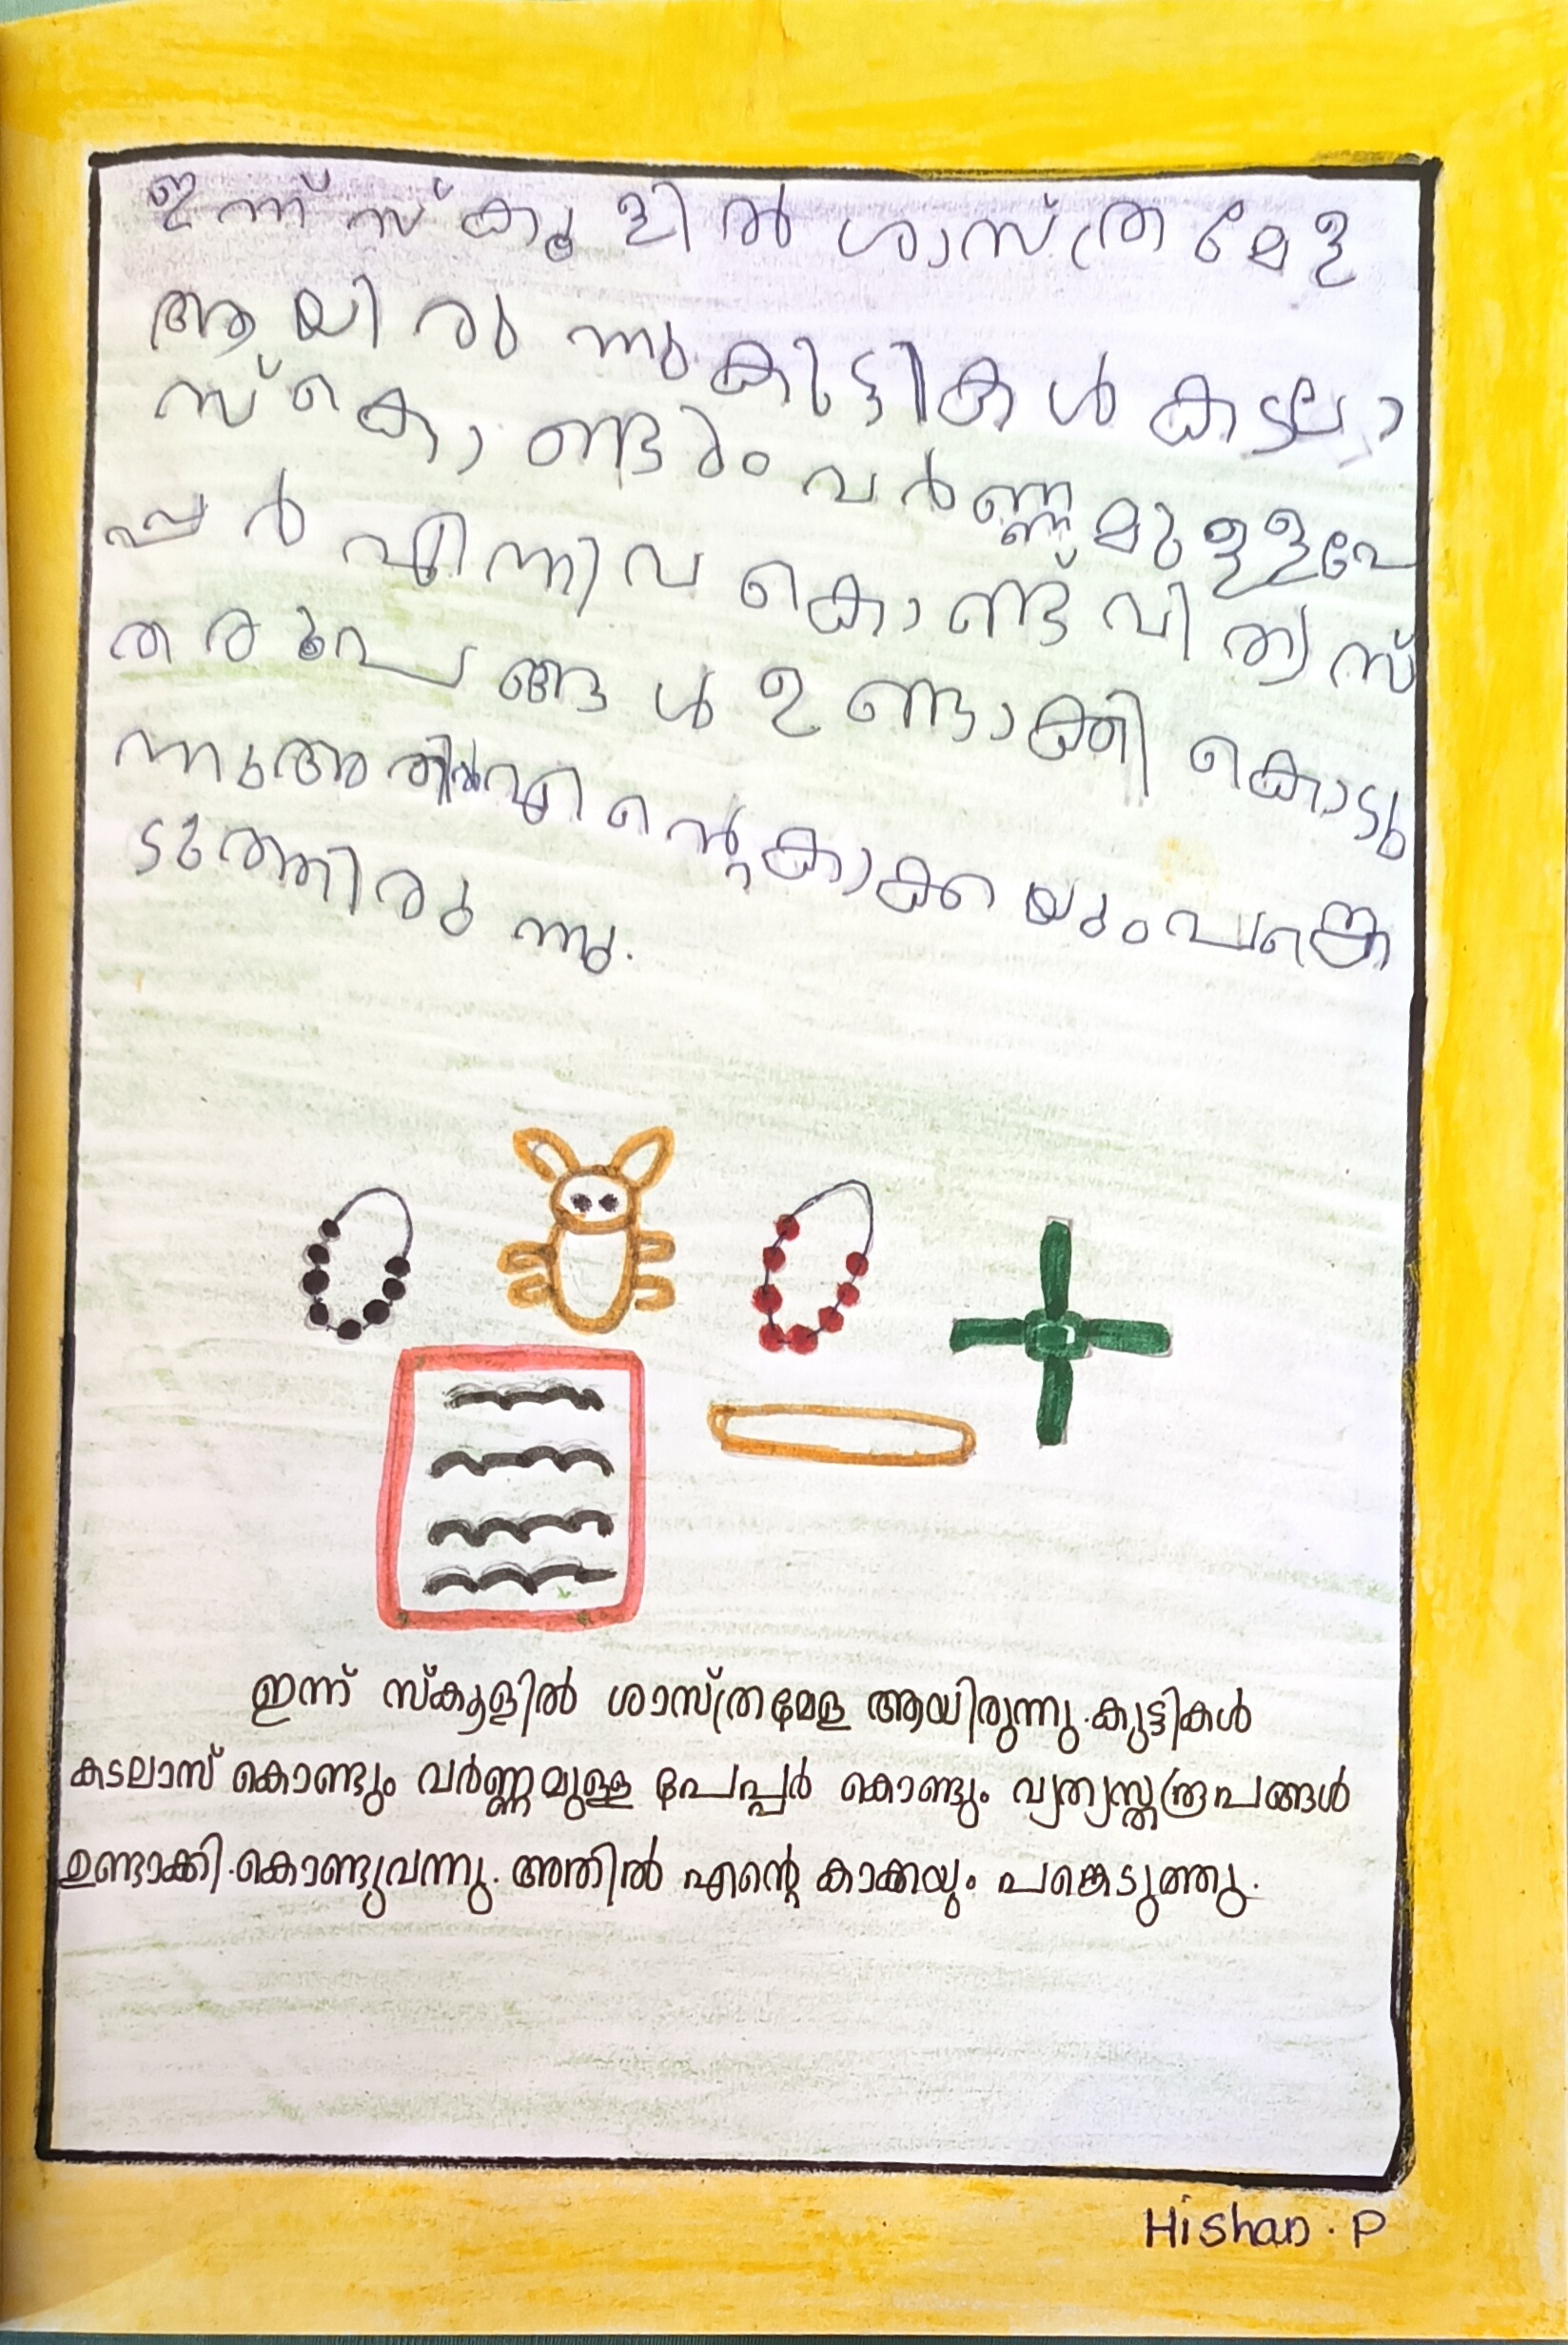 ഇന്ന് സ്കൂളിൽ ശാസ്ത്ര മേള
ആയിരുന്നു. കുട്ടികൾ കടലാ
സ് കൊണ്ടും വർണ്ണമുള്ള പേ
പ്പർ എന്നിവ കൊണ്ട് വിത്യസ്
ത രൂപങ്ങൾ ഉണ്ടാക്കി കൊടു
ന്നു അതിൽ എന്റെ കാക്കയും പങ്കെ
ടുത്തിരുന്നു.
ഇന്ന് സ്കൂളിൽ ശാസ്ത്രമേള ആയിരുന്നു. കുട്ടികൾ
കടലാസ് കൊണ്ടും വർണ്ണമുള്ള പേപ്പർ കൊണ്ടും വ്യത്യസ്തരൂപങ്ങൾ
ഉണ്ടാക്കി.കൊണ്ടുവന്നു. അതിൽ എന്റെ കാക്കയും പങ്കെടുത്തു.
Hishan . P